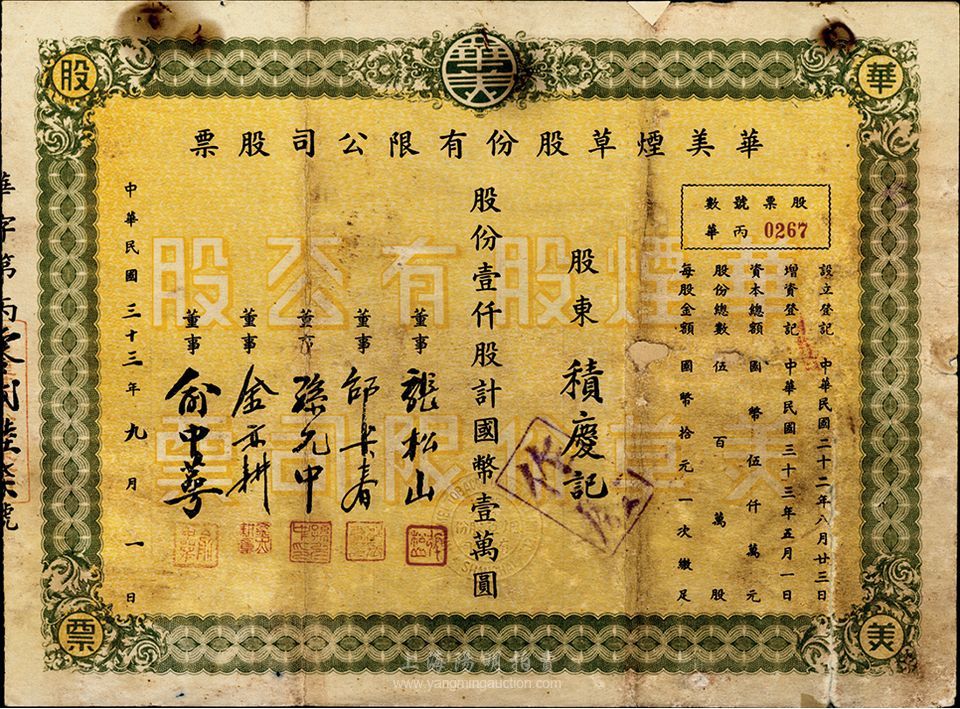 華美
股
華
華美煙草股份有限公司股票
股票號數
華丙 0267
設立登記 中華民國二十二年八月廿三日
增資登記 中華民國三十三年五月一日
資本總額 國幣伍仟萬元
股份總數 伍百萬股
每股金額 國幣拾元一次繳足
股東 積慶記
股份壹仟股計國幣壹萬圓
董事 張松山
董事
董事 孫元中
董事 金亦耕
董事 俞中萼
中華民國三十三年九月一日
華煙股有公股
美草份限司票
華字第丙
號
票
美
上海陽明拍賣
www.yangmingauction.com